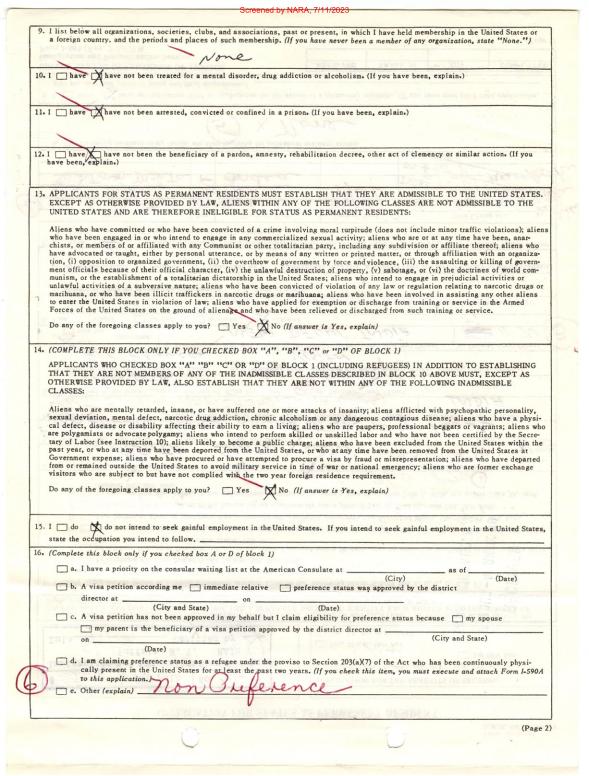 Screened by NARA, 7/11/2023
9. I list below all organizations, societies, clubs, and associations, past or present, in which I have held membership in the United States or
a foreign country, and the periods and places of such membership. (If you have never been a member of any organization, state "None.")
None
10. I have have not been treated for a mental disorder, drug addiction or alcoholism. (If you have been, explain.)
11. I have have not been arrested, convicted or confined in a prison. (If you have been, explain.)
12. I have have not been the beneficiary of a pardon, amnesty, rehabilitation decree, other act of clemency or similar action. (If you
have been, explain.)
13. APPLICANTS FOR STATUS AS PERMANENT RESIDENTS MUST ESTABLISH THAT THEY ARE ADMISSIBLE TO THE UNITED STATES.
EXCEPT AS OTHERWISE PROVIDED BY LAW, ALIENS WITHIN ANY OF THE FOLLOWING CLASSES ARE NOT ADMISSIBLE TO THE
UNITED STATES AND ARE THEREFORE INELIGIBLE FOR STATUS AS PERMANENT RESIDENTS:
Aliens who have committed or who have been convicted of a crime involving moral turpitude (does not include minor traffic violations); aliens
who have been engaged in or who intend to engage in any commercialized sexual activity; aliens who are or at any time have been, anar-
chists, or members of or affiliated with any Communist or other totalitarian party, including any subdivision or affiliate thereof; aliens who
have advocated or taught, either by personal utterance, or by means of any written or printed matter, or through affiliation with an organiza-
tion, (i) opposition to organized government, (ii) the overthrow of government by force and violence, (iii) the assaulting or killing of govern-
ment officials because of their official character, (iv) the unlawful destruction of property, (v) sabotage, or (vi) the doctrines of world com-
munism, or the establishment of a totalitarian dictatorship in the United States; aliens who intend to engage in prejudicial activities or
unlawful activities of a subversive nature; aliens who have been convicted of violation of any law or regulation relating to narcotic drugs or
marihuana, or who have been illicit traffickers in narcotic drugs or marihuana; aliens who have been involved in assisting any other aliens
to enter the United States in violation of law; aliens who have applied for exemption or discharge from training or service in the Armed
Forces of the United States on the ground of alienage and who have been relieved or discharged from such training or service.
Do any of the foregoing classes apply to you? Yes No (If answer is Yes, explain)
14. (COMPLETE THIS BLOCK ONLY IF YOU CHECKED BOX "A", "B", "C" or "D" OF BLOCK 1)
APPLICANTS WHO CHECKED BOX "A" "B" "C" OR "D" OF BLOCK 1 (INCLUDING REFUGEES) IN ADDITION TO ESTABLISHING
THAT THEY ARE NOT MEMBERS OF ANY OF THE INADMISSIBLE CLASSES DESCRIBED IN BLOCK 10 ABOVE MUST, EXCEPT AS
OTHERWISE PROVIDED BY LAW, ALSO ESTABLISH THAT THEY ARE NOT WITHIN ANY OF THE FOLLOWING INADMISSIBLE
CLASSES:
Aliens who are mentally retarded, insane, or have suffered one or more attacks of insanity; aliens afflicted with psychopathic personality,
sexual deviation, mental defect, narcotic drug addiction, chronic alcoholism or any dangerous contagious disease; aliens who have a physi-
cal defect, disease or disability affecting their ability to earn a living; aliens who are paupers, professional beggars or vagrants; aliens who
are polygamists or advocate polygamy; aliens who intend to perform skilled or unskilled labor and who have not been certified by the Secre-
tary of Labor (see Instruction 10); aliens likely to become a public charge; aliens who have been excluded from the United States within the
past year, or who at any time have been deported from the United States, or who at any time have been removed from the United States at
Government expense; aliens who have procured or have attempted to procure a visa by fraud or misrepresentation; aliens who have departed
from or remained outside the United States to avoid military service in time of war or national emergency; aliens who are former exchange
visitors who are subject to but have not complied with the two year foreign residence requirement.
Do any of the foregoing classes apply to you? Yes No (If answer is Yes, explain)
15. I do do not intend to seek gainful employment in the United States. If you intend to seek gainful employment in the United States,
state the occupation you intend to follow.
16. (Complete this block only if you checked box A or D of block 1)
a. I have a priority on the consular waiting list at the American Consulate at as of
(City) (Date)
b. A visa petition according me immediate relative preference status was approved by the district
director at on
(City and State) (Date)
c. A visa petition has not been approved in my behalf but I claim eligibility for preference status because my spouse
my parent is the beneficiary of a visa petition approved by the district director at
(City and State)
on
(Date)
d. I am claiming preference status as a refugee under the proviso to Section 203(a)(7) of the Act who has been continuously physi-
cally present in the United States for at least the past two years. (If you check this item, you must execute and attach Form I-590A
to this application.)
6 e. Other (explain) Non Preference
(Page 2)